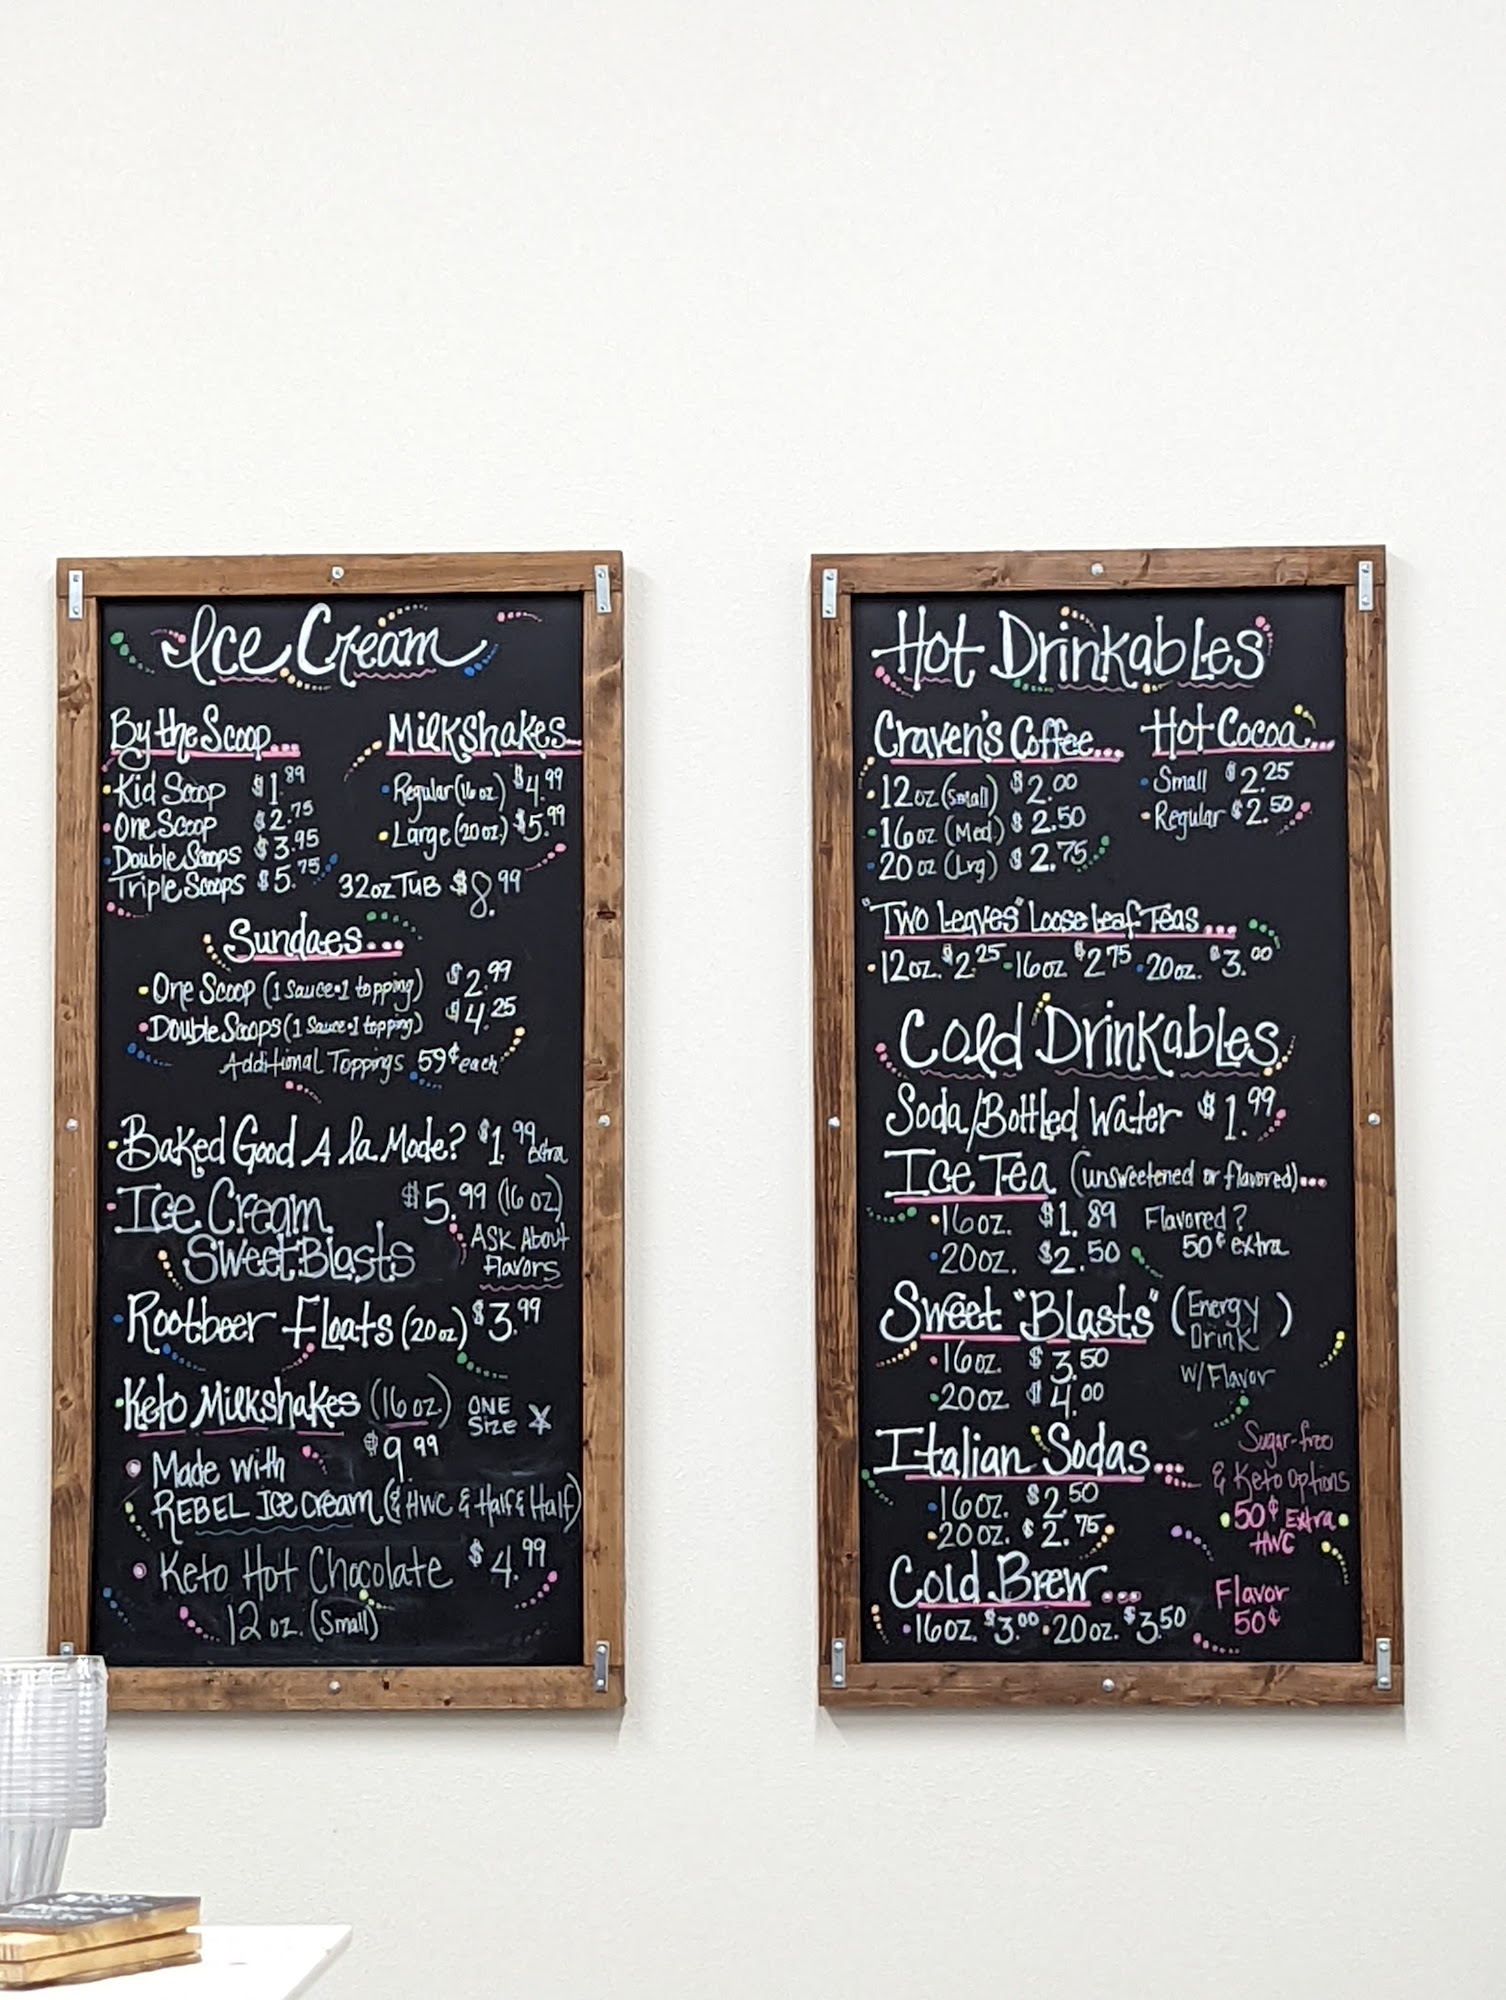 Ice Cream
By the Scoop...
Kid Scoop $1.89
One Scoop $2.75
Double Scoops $3.95
Triple Scoops $5.75
Milkshakes...
Regular (16 oz.) $4.99
Large (20 oz.) $5.99
32oz TUB $8.99
Sundaes...
One Scoop (1 Sauce•1 topping) $2.99
Double Scoops (1 Sauce•1 topping) $4.25
Additional Toppings 59¢ each
Baked Good A la Mode? $1.99 extra
Ice Cream $5.99 (16 oz)
Sweet Blasts
ASK About
flavors
Rootbeer Floats (20oz) $3.99
Keto Milkshakes (16oz.) ONE
Size
$9.99
Made with
REBEL Ice cream (& HWC & Half & Half)
Keto Hot Chocolate $4.99
12 oz. (Small)
Hot Drinkables
Craven's Coffee...
12oz (Small) $2.00
16oz (Med) $2.50
20oz (Lrg) $2.75
Hot Cocoa...
Small $2.25
Regular $2.50
"Two Leaves" Loose Leaf Teas...
12oz. $2.25 16oz $2.75 20oz. $3.00
Cold Drinkables
Soda/Bottled Water $1.99
Ice Tea (unsweetened or flavored)...
16oz. $1.89
20oz. $2.50
Flavored?
50¢ extra
Sweet "Blasts" (Energy
Drink)
w/Flavor
16oz. $3.50
20oz $4.00
Italian Sodas...
16oz. $2.50
20oz. $2.75
Sugar-free
& Keto Options
50¢ Extra
HWC
Cold Brew...
16oz. $3.00 20oz. $3.50
Flavor
50¢